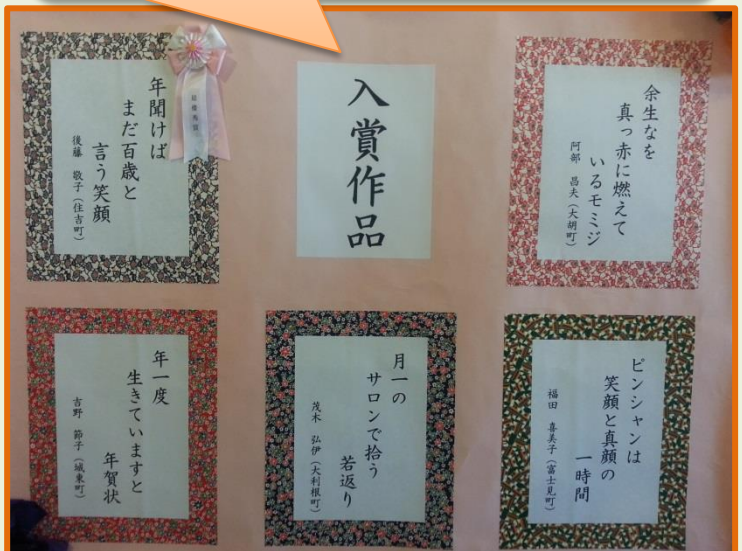 入賞作品
余生なを
真っ赤に燃えて
いるモミジ
阿部 昌夫（大胡町）
年聞けば
まだ百歳と
言う笑顔
後藤 敬子（住吉町）
最優秀賞
ピンシャンは
笑顔と真顔の
一時間
福田 喜美子（富士見町）
月一の
サロンで拾う
若返り
茂木 弘伊（大利根町）
年一度
生きていますと
年賀状
吉野 節子（城東町）